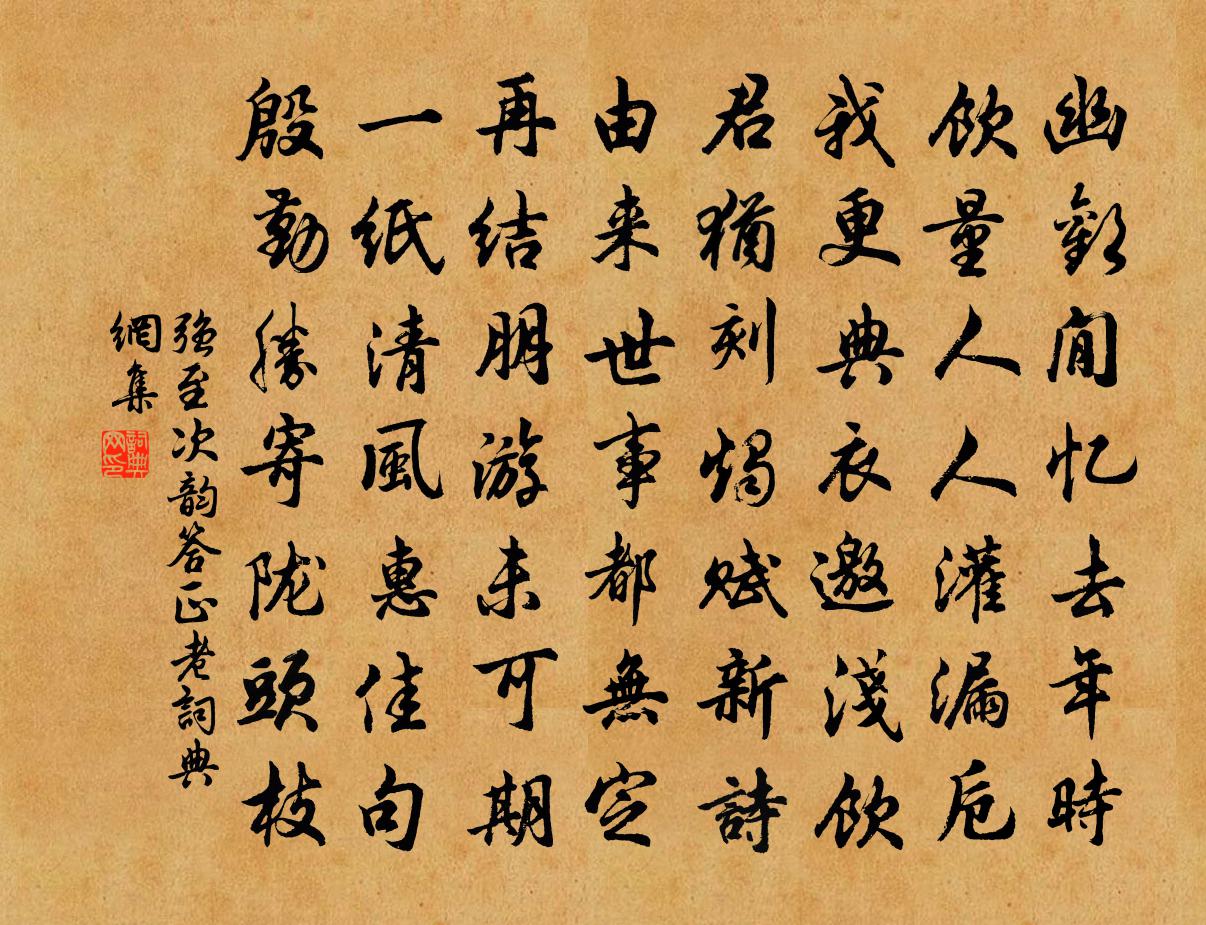 幽歡閒忆去年時
飲量人人灌漏卮
我更典衣邀淺飲
君猶刻燭賦新詩
由来世事都無定
再結朋游未可期
一紙清風惠佳句
殷勤勝寄陇頭枝
強至次韵答正老詞典
網集
詞典
网印